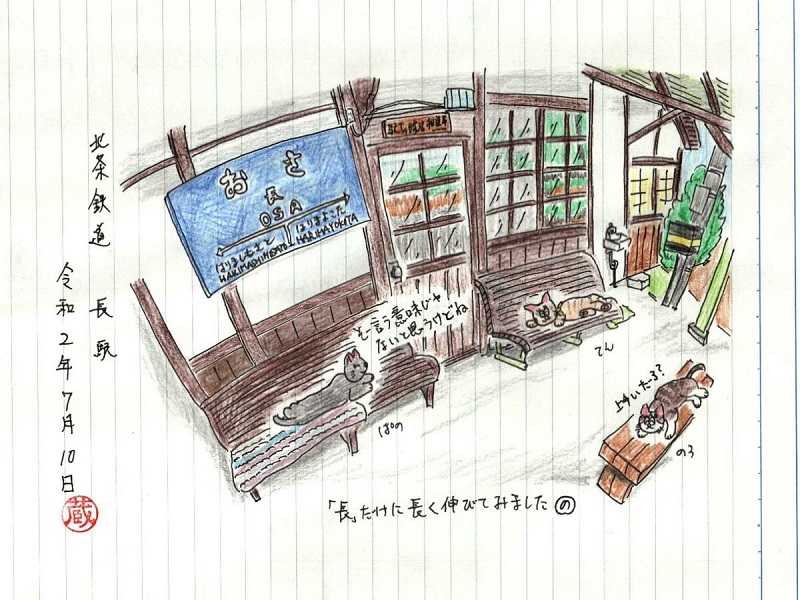 北条鉄道 長駅
令和2年7月10日
蔵
おさ
長
OSA
はりましもさと
はりまよこた
HARIMAYOKOTA
そー言う意味じゃ
ないと思うけどね
ぱの
てん
のろ
「長」だけに長く伸びてみました の